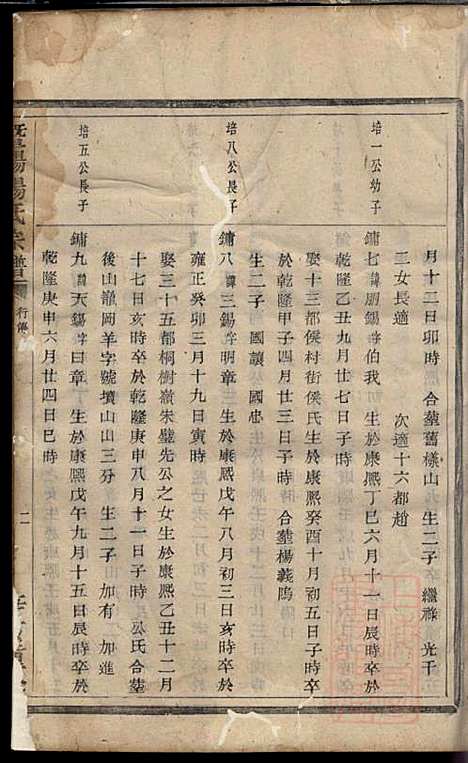 月十二日卯時 合塟舊樣山 生二子 繼祿 光千
二女長適 次適十六都趙
培一公幼子
鏞七諱朋錫字伯我 生於康熙丁巳六月十一日辰時卒於
乾隆乙丑九月廿七日子時
娶十三都侯村街侯氏生於康熙癸酉十月初五日子時卒
於乾隆甲子四月廿三日子時 合塟楊義塢
生二子 國讓 國忠
培八公長子
鏞八諱三錫字明章 生於康熙戊午八月初三日亥時卒於
雍正癸卯三月十九日寅時
娶三十五都桐樹嶺朱璧先公之女生於康熙乙丑十二月
十七日亥時卒於乾隆庚申八月十一日子時 公氏合塟
後山嶺岡羊字號墳山山三分 生二子 加有 加進
培五公長子
鏞九諱天錫字曰章 生於康熙戊午九月十五日辰時卒於
乾隆庚申六月廿四日巳時
暨陽楊氏宗譜 行傳 二